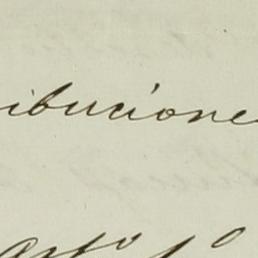 ibucione
Arto 1o